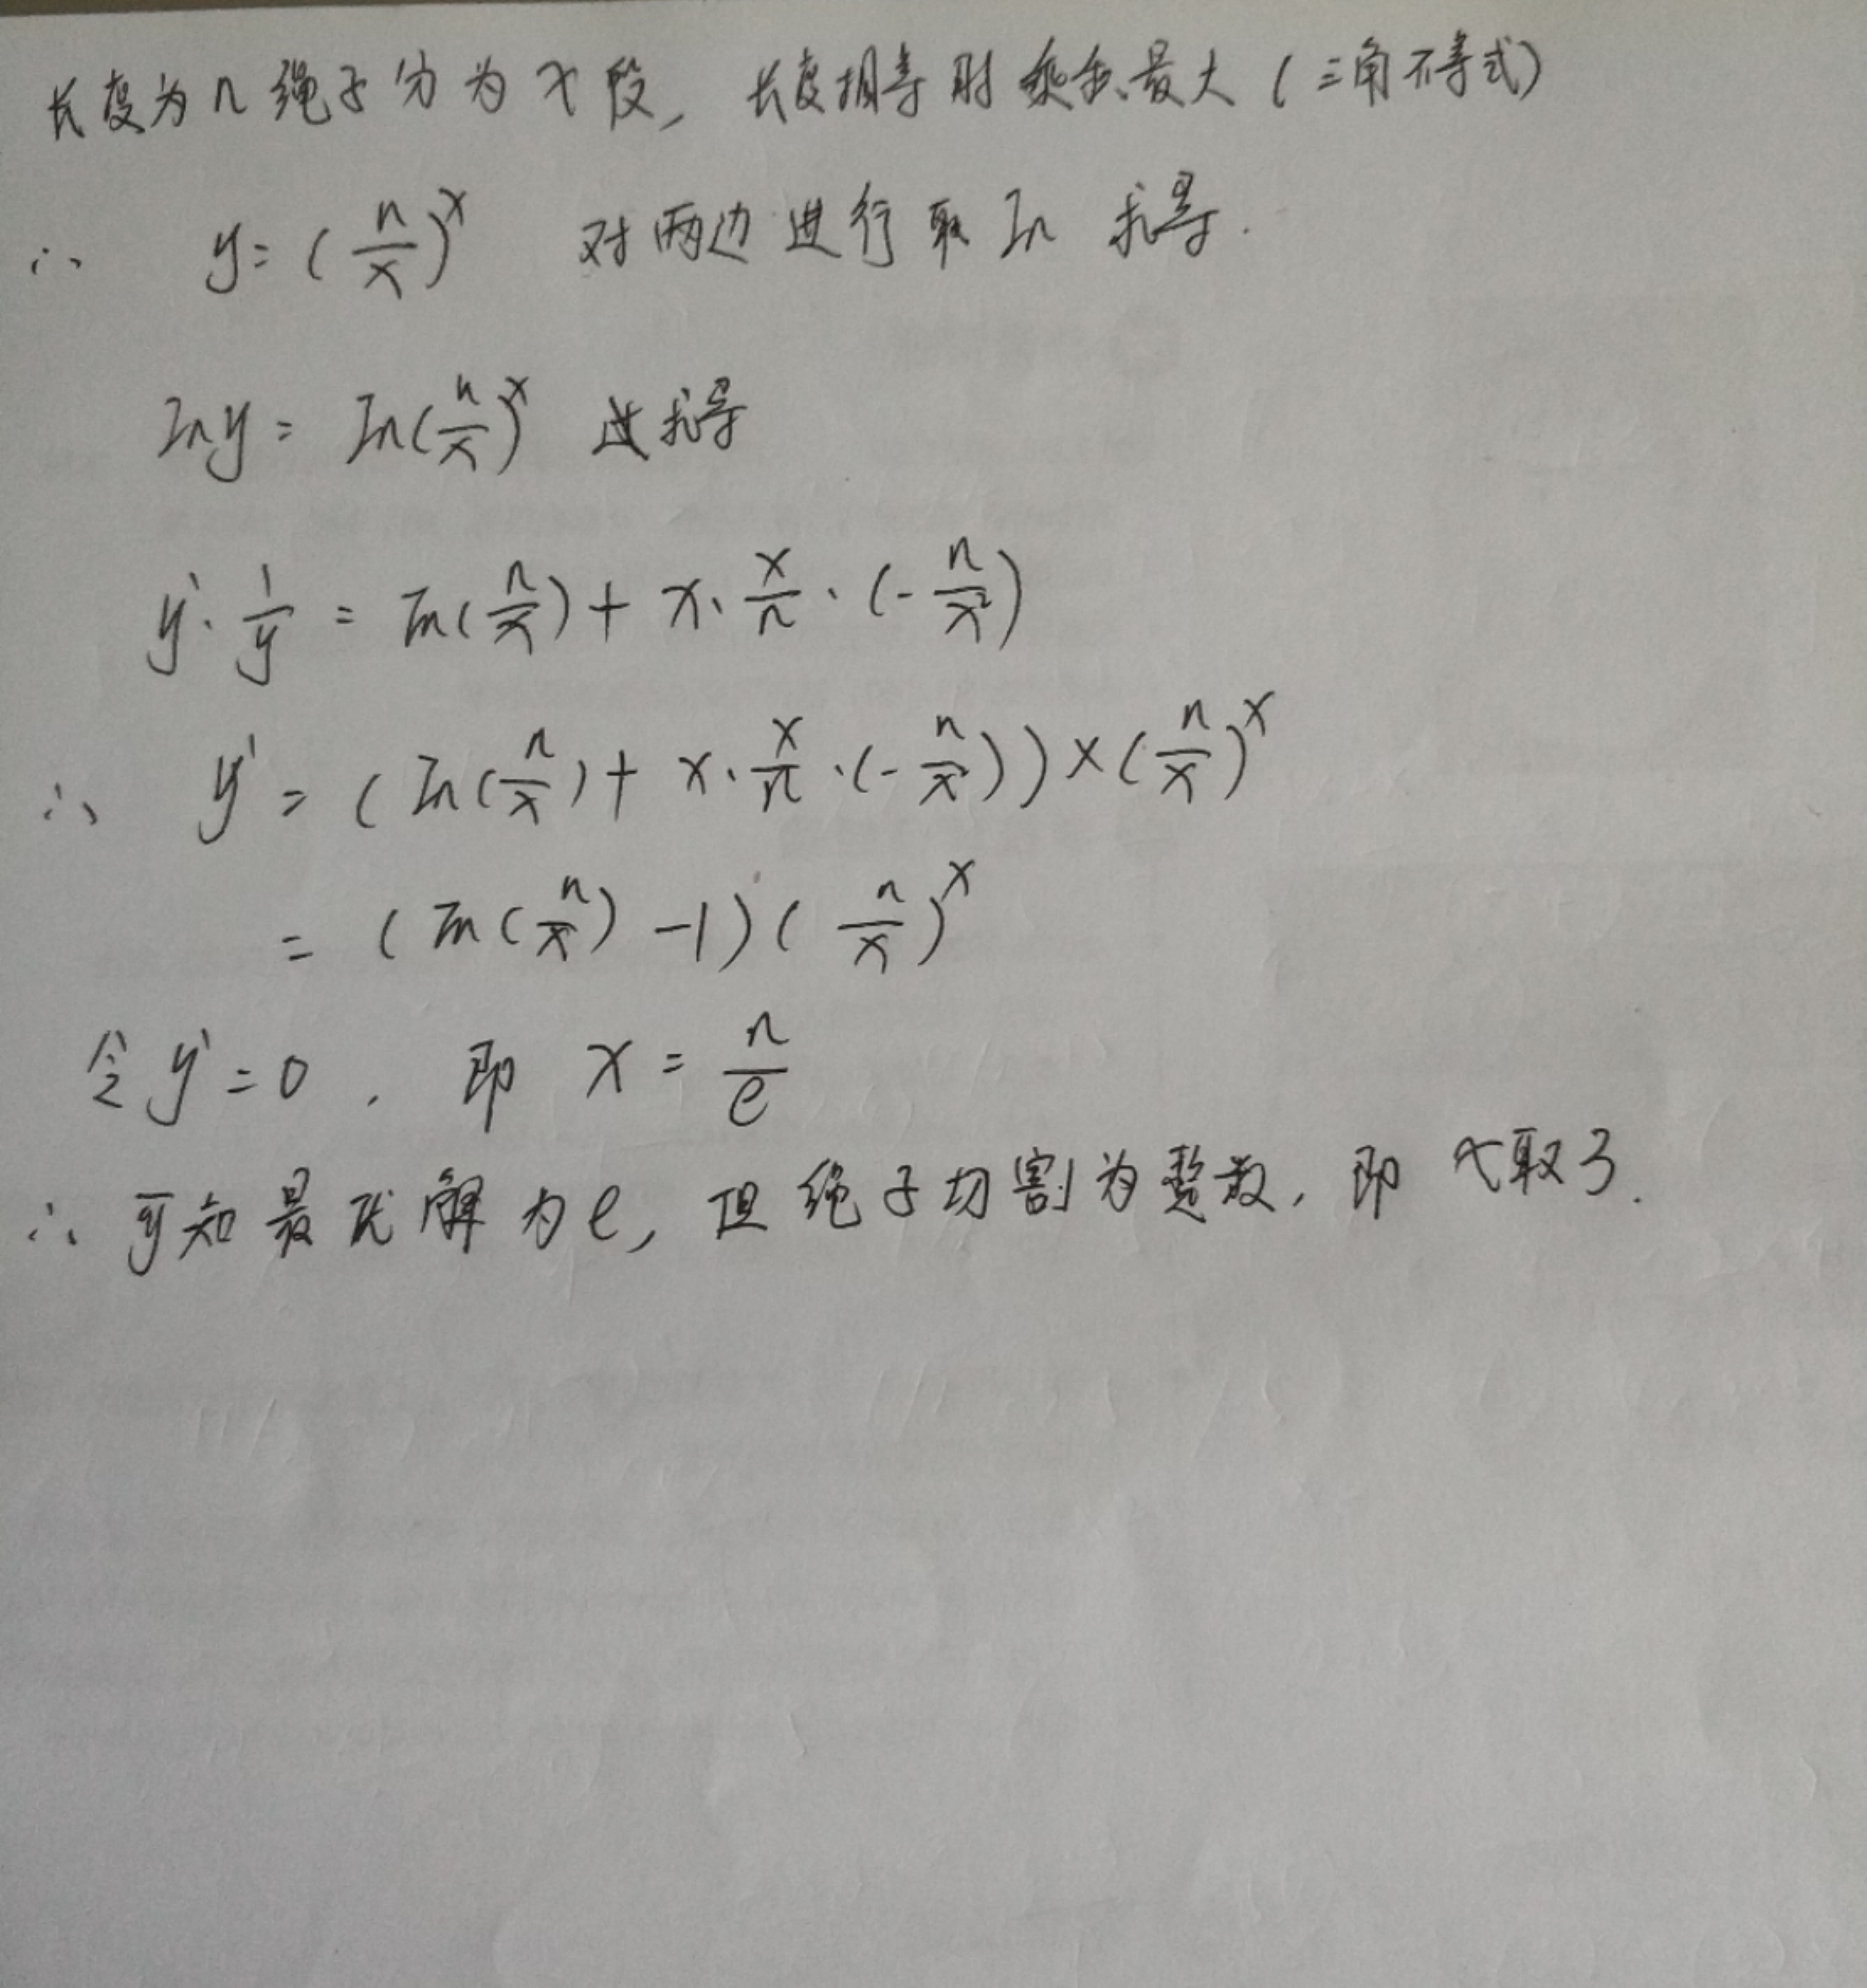 长度为n绳子分为x段, 长度相等时乘积最大(三角不等式)
∴ y=(n/x)^x 对两边进行取ln 求导.
lny = ln(n/x)^x 进求导
y'·1/y = ln(n/x)+x·x/n·(-n/x²)
∴ y' = (ln(n/x)+x·x/n·(-n/x²))×(n/x)^x
= (ln(n/x)-1)(n/x)^x
令y'=0, 即 x=n/e
∴ 可知最优解为e, 但绳子切割为整数, 即 取3.